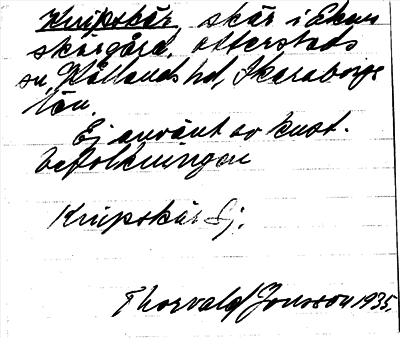 Knipskär, skär i Ekens
skärgård, Otterstads
sn, Kållands hd, Skaraborgs
län.
Ej använt av kust-
befolkningen
Knipskär Ej.
Thorvald Jonsson 1935.